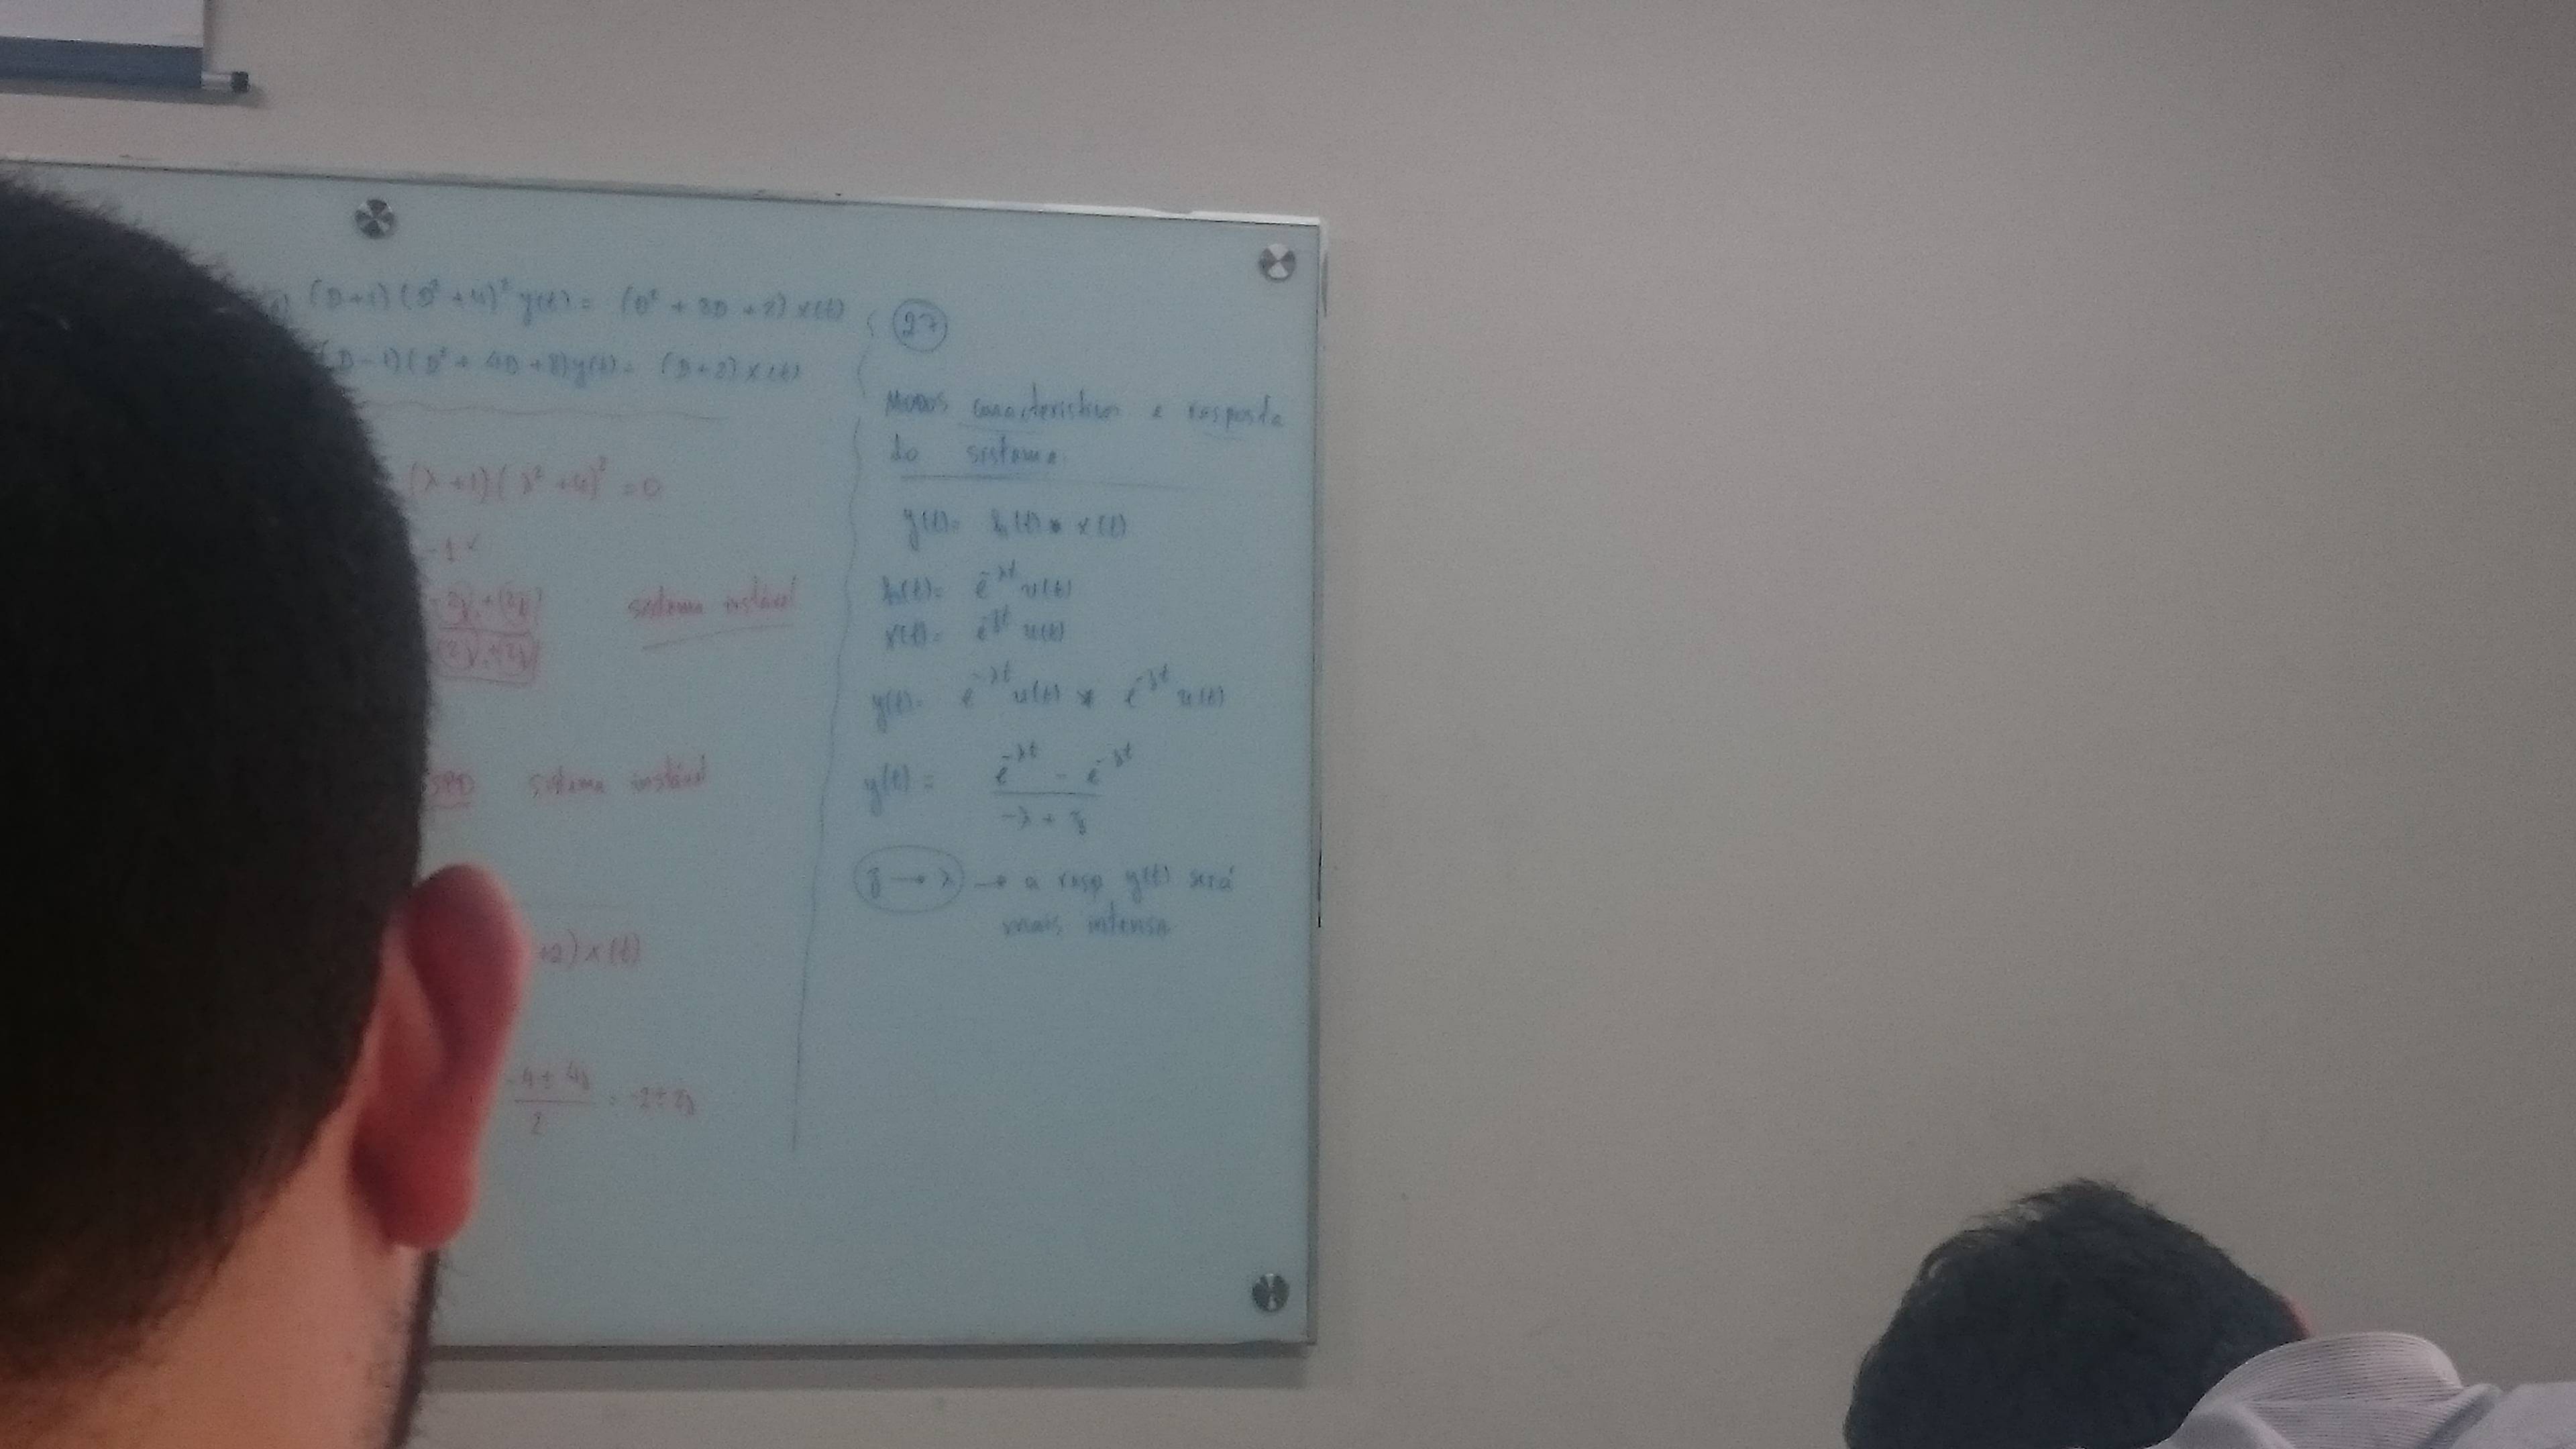 (D+1)(D²+4)² y(t) = (D² + 3D + 2) x(t)
(D-1)(D² + 4D + 8) y(t) = (D+2) x(t)
(λ+1)(λ²+4)² = 0
-1 ✓
sistema instável
SPD sistema instável
+2) x(t)
-4 ± 4j / 2 = -2 ± 2j
27
Modos característicos e resposta
do sistema
y(t) = h(t) * x(t)
h(t) = e^-λt u(t)
x(t) = e^-ʒt u(t)
y(t) = e^-λt u(t) * e^-ʒt u(t)
y(t) = e^-λt - e^-ʒt
-λ + ʒ
ʒ → λ → a resp y(t) será
mais intensa